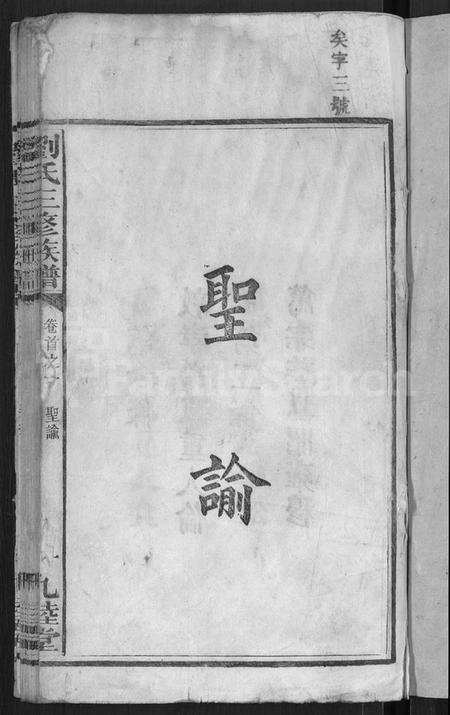 矣字三號
聖諭
劉氏三修族譜
卷首之一
聖諭
一
九睦堂
FamilySearch